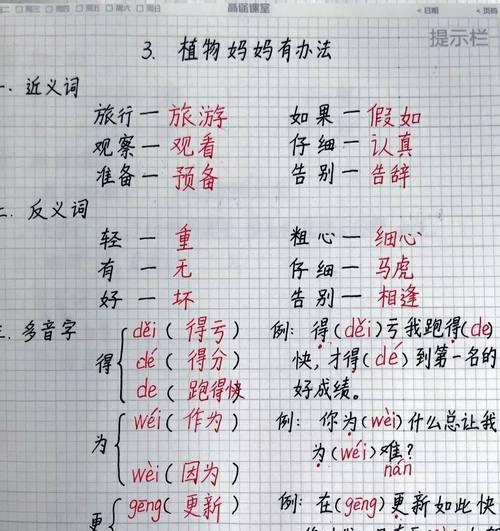 二 三 四 五 六 日
高途课堂
日期
页码
提示栏
3. 植物妈妈有办法
一. 近义词
旅行一旅游 如果一假如
观察一观看 仔细一认真
准备一预备 告别一告辞
二. 反义词
轻一重 粗心一细心
有一无 仔细一马虎
好一坏 告别一相逢
三. 多音字
得 děi(得亏) 例: 得(děi)亏我跑得(de)
dé(得分) 快,才得(dé)到第一名的
de(跑得快 好成绩。
为 wéi(作为) 例: 你为(wèi)什么总让我
wèi(因为) 为(wéi)难?
nán
更 gēng(更新) 例: 在(gēng)更新如此快